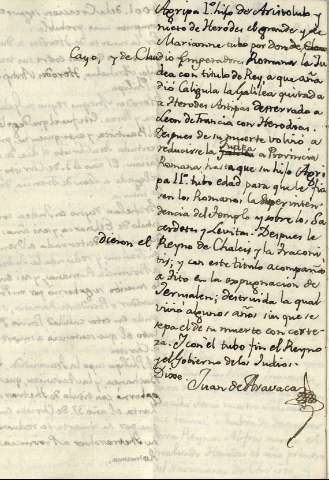 Agripa 1.º hijo de Aristolulo y
nieto de Herodes el grande y de
Mariamne cubo por don de
Cayo, y de Claudio Emperadores Romanos la Ju
dea con titulo de Rey, a que aña
dió Caligula la Galilea quitada
a Herodes Antipas desterrado a
Leon de Francia con Herodias.
Despues de su muerte volvio a
reducirse la Judea a Provincia
Romana hasta que su hijo Agri
pa II.º tubo edad para que le fia
sen los Romanos la Superinten
dencia del Templo y sobre los Sa
cerdotes y Levitas. Despues le
dieron el Reyno de Chalcis y la Traconi
tis; y con este titulo acompaño
a Tito en la expugnacion de
Jerusalen; destruida la qual
vivio algunos años sin que se
sepa el de su muerte con certe
za. Y con el tubo fin el Reyno
y el Gobierno de los Judios.
Dixe
Juan de Aravaca